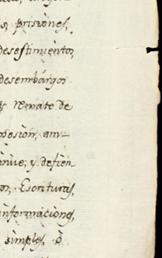 s, prisiones,
desestimientos,
desembargos
y remate de
posesion, am-
y defien
on, Escrituras,
informaciones,
simples, ò